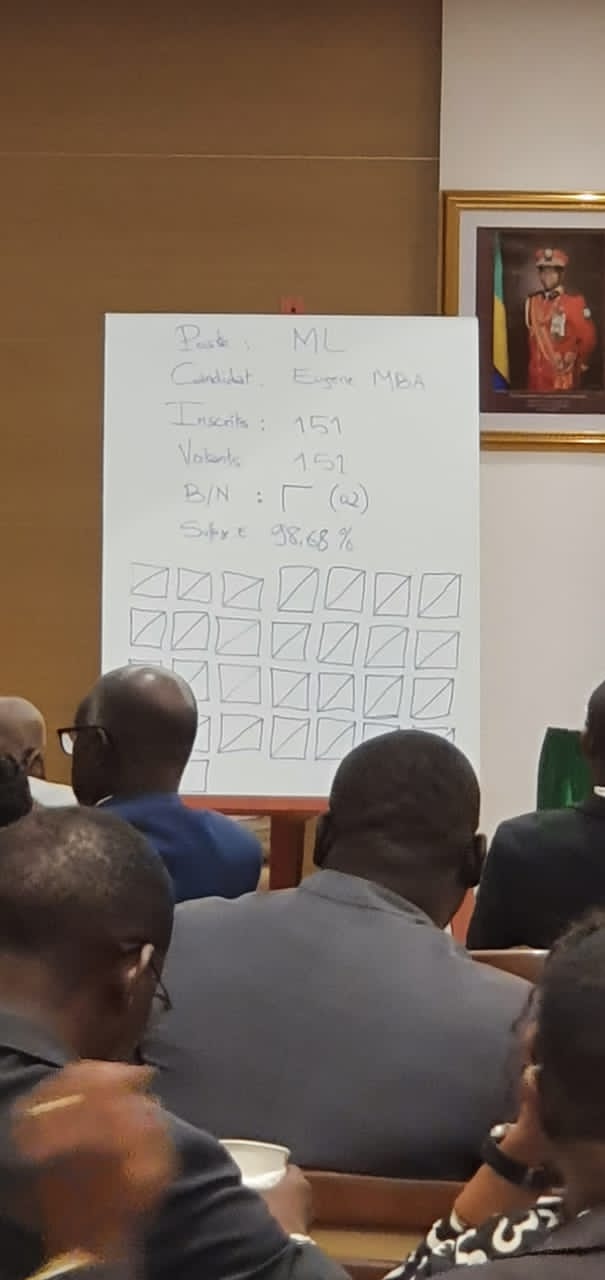 Poste : ML
Candidat : Eugène MBA
Inscrits : 151
Votants 151
B/N : (02)
98,68 %